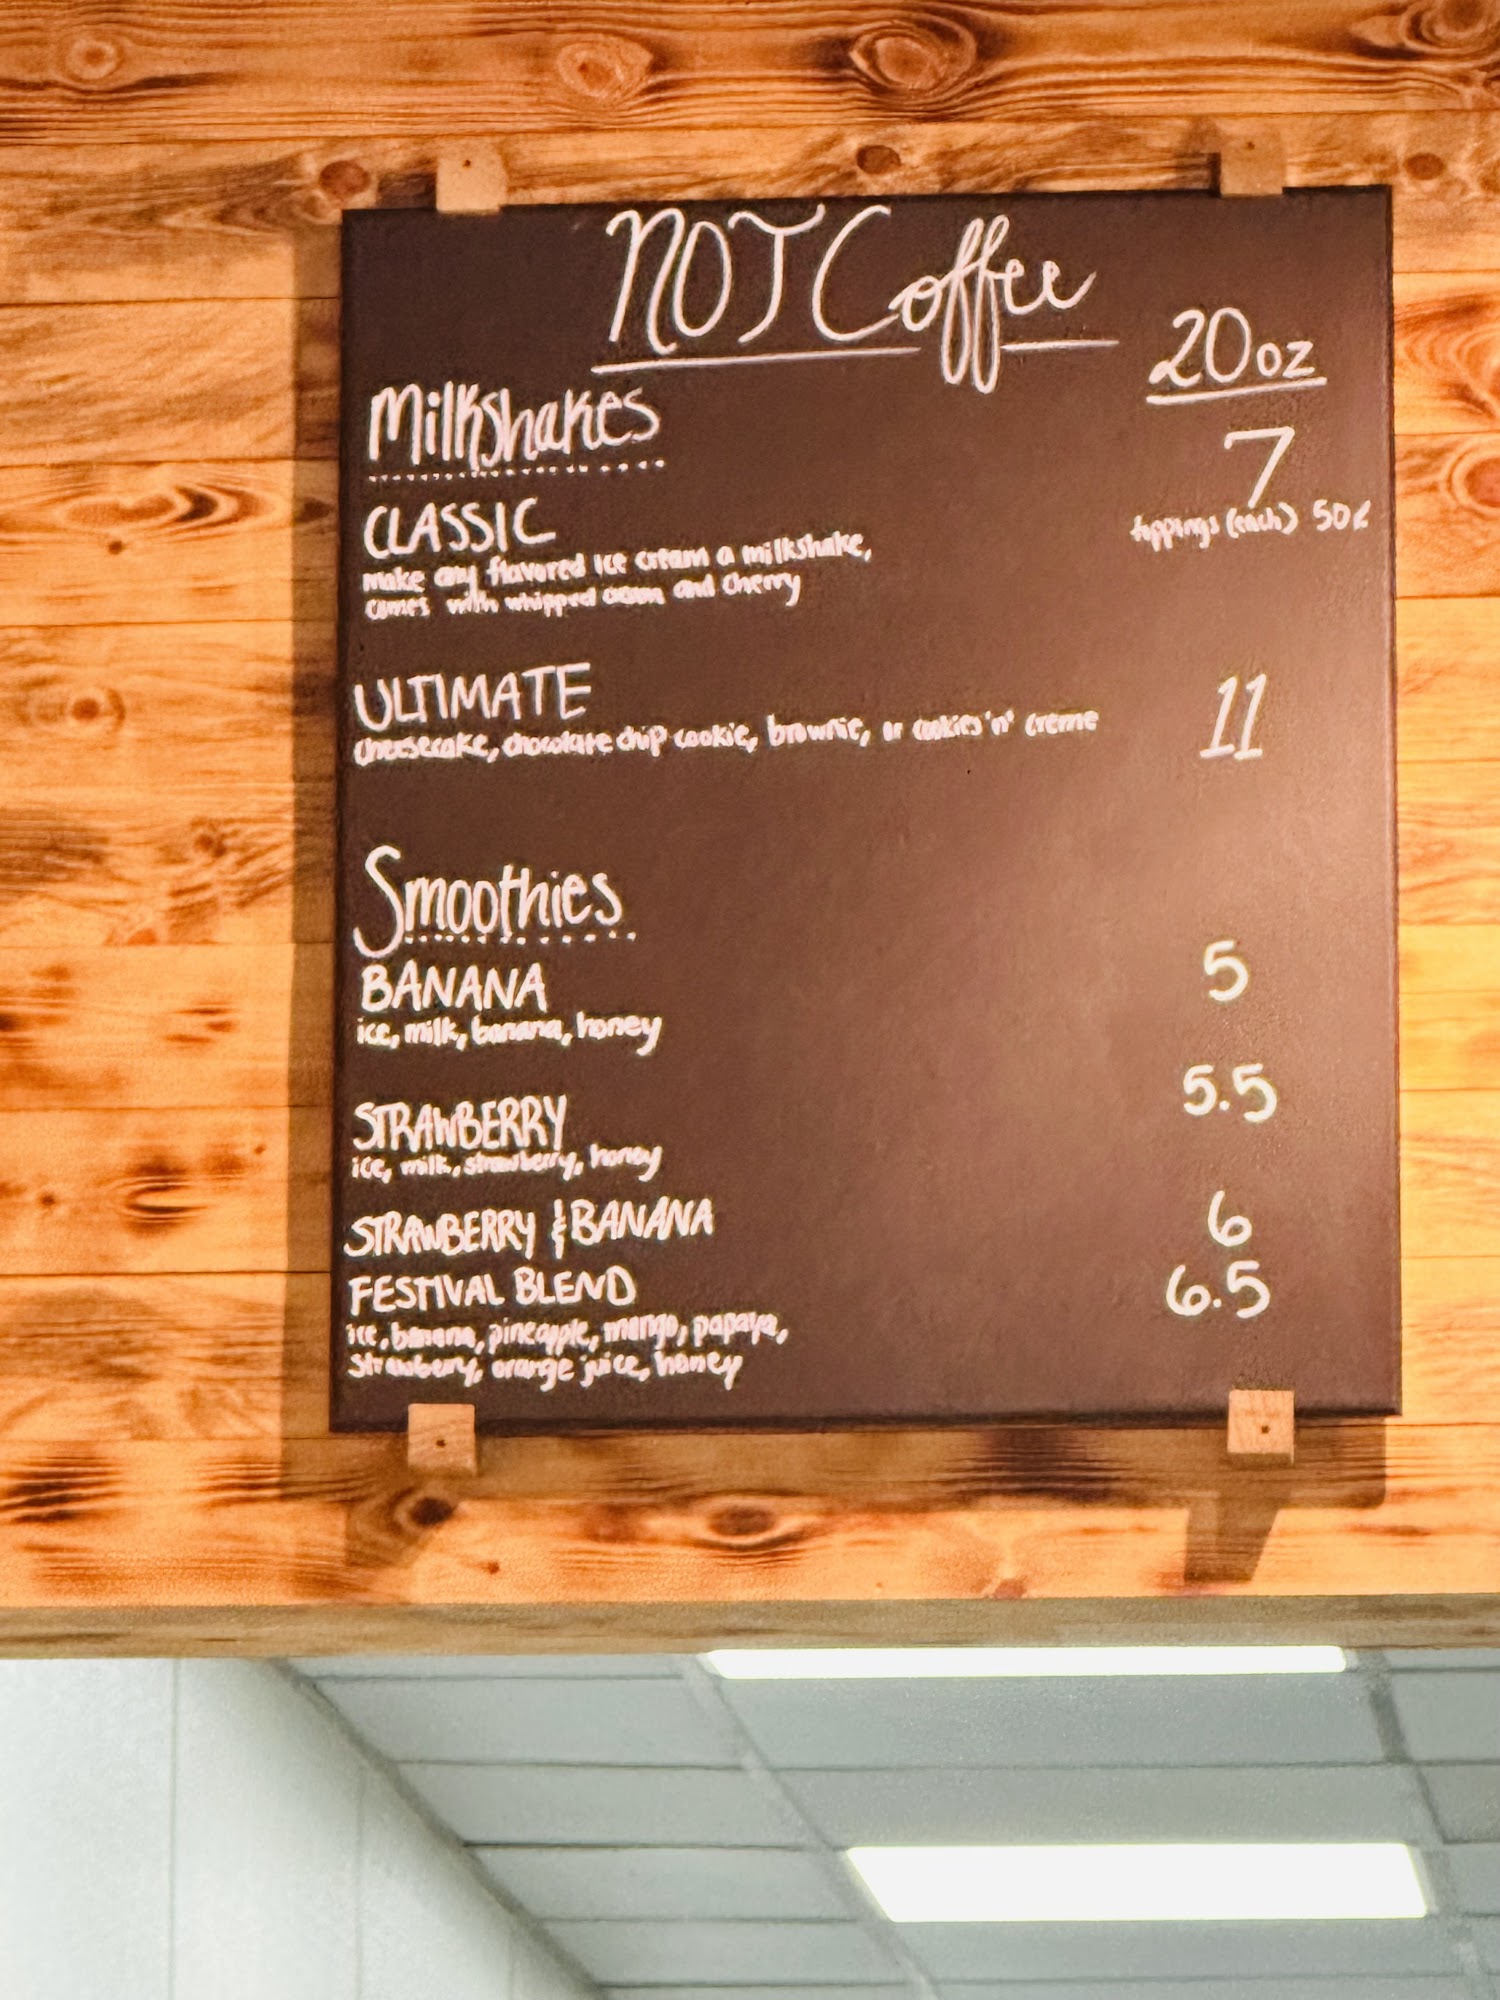 NOT Coffee
20oz
Milkshakes
7
CLASSIC
toppings (each) 50¢
make any flavored ice cream a milkshake,
comes with whipped cream and cherry
ULTIMATE
11
cheesecake, chocolate chip cookie, brownie, or cookies 'n' creme
Smoothies
BANANA
5
ice, milk, banana, honey
STRAWBERRY
5.5
ice, milk, strawberry, honey
STRAWBERRY & BANANA
6
FESTIVAL BLEND
6.5
ice, banana, pineapple, mango, papaya,
strawberry, orange juice, honey